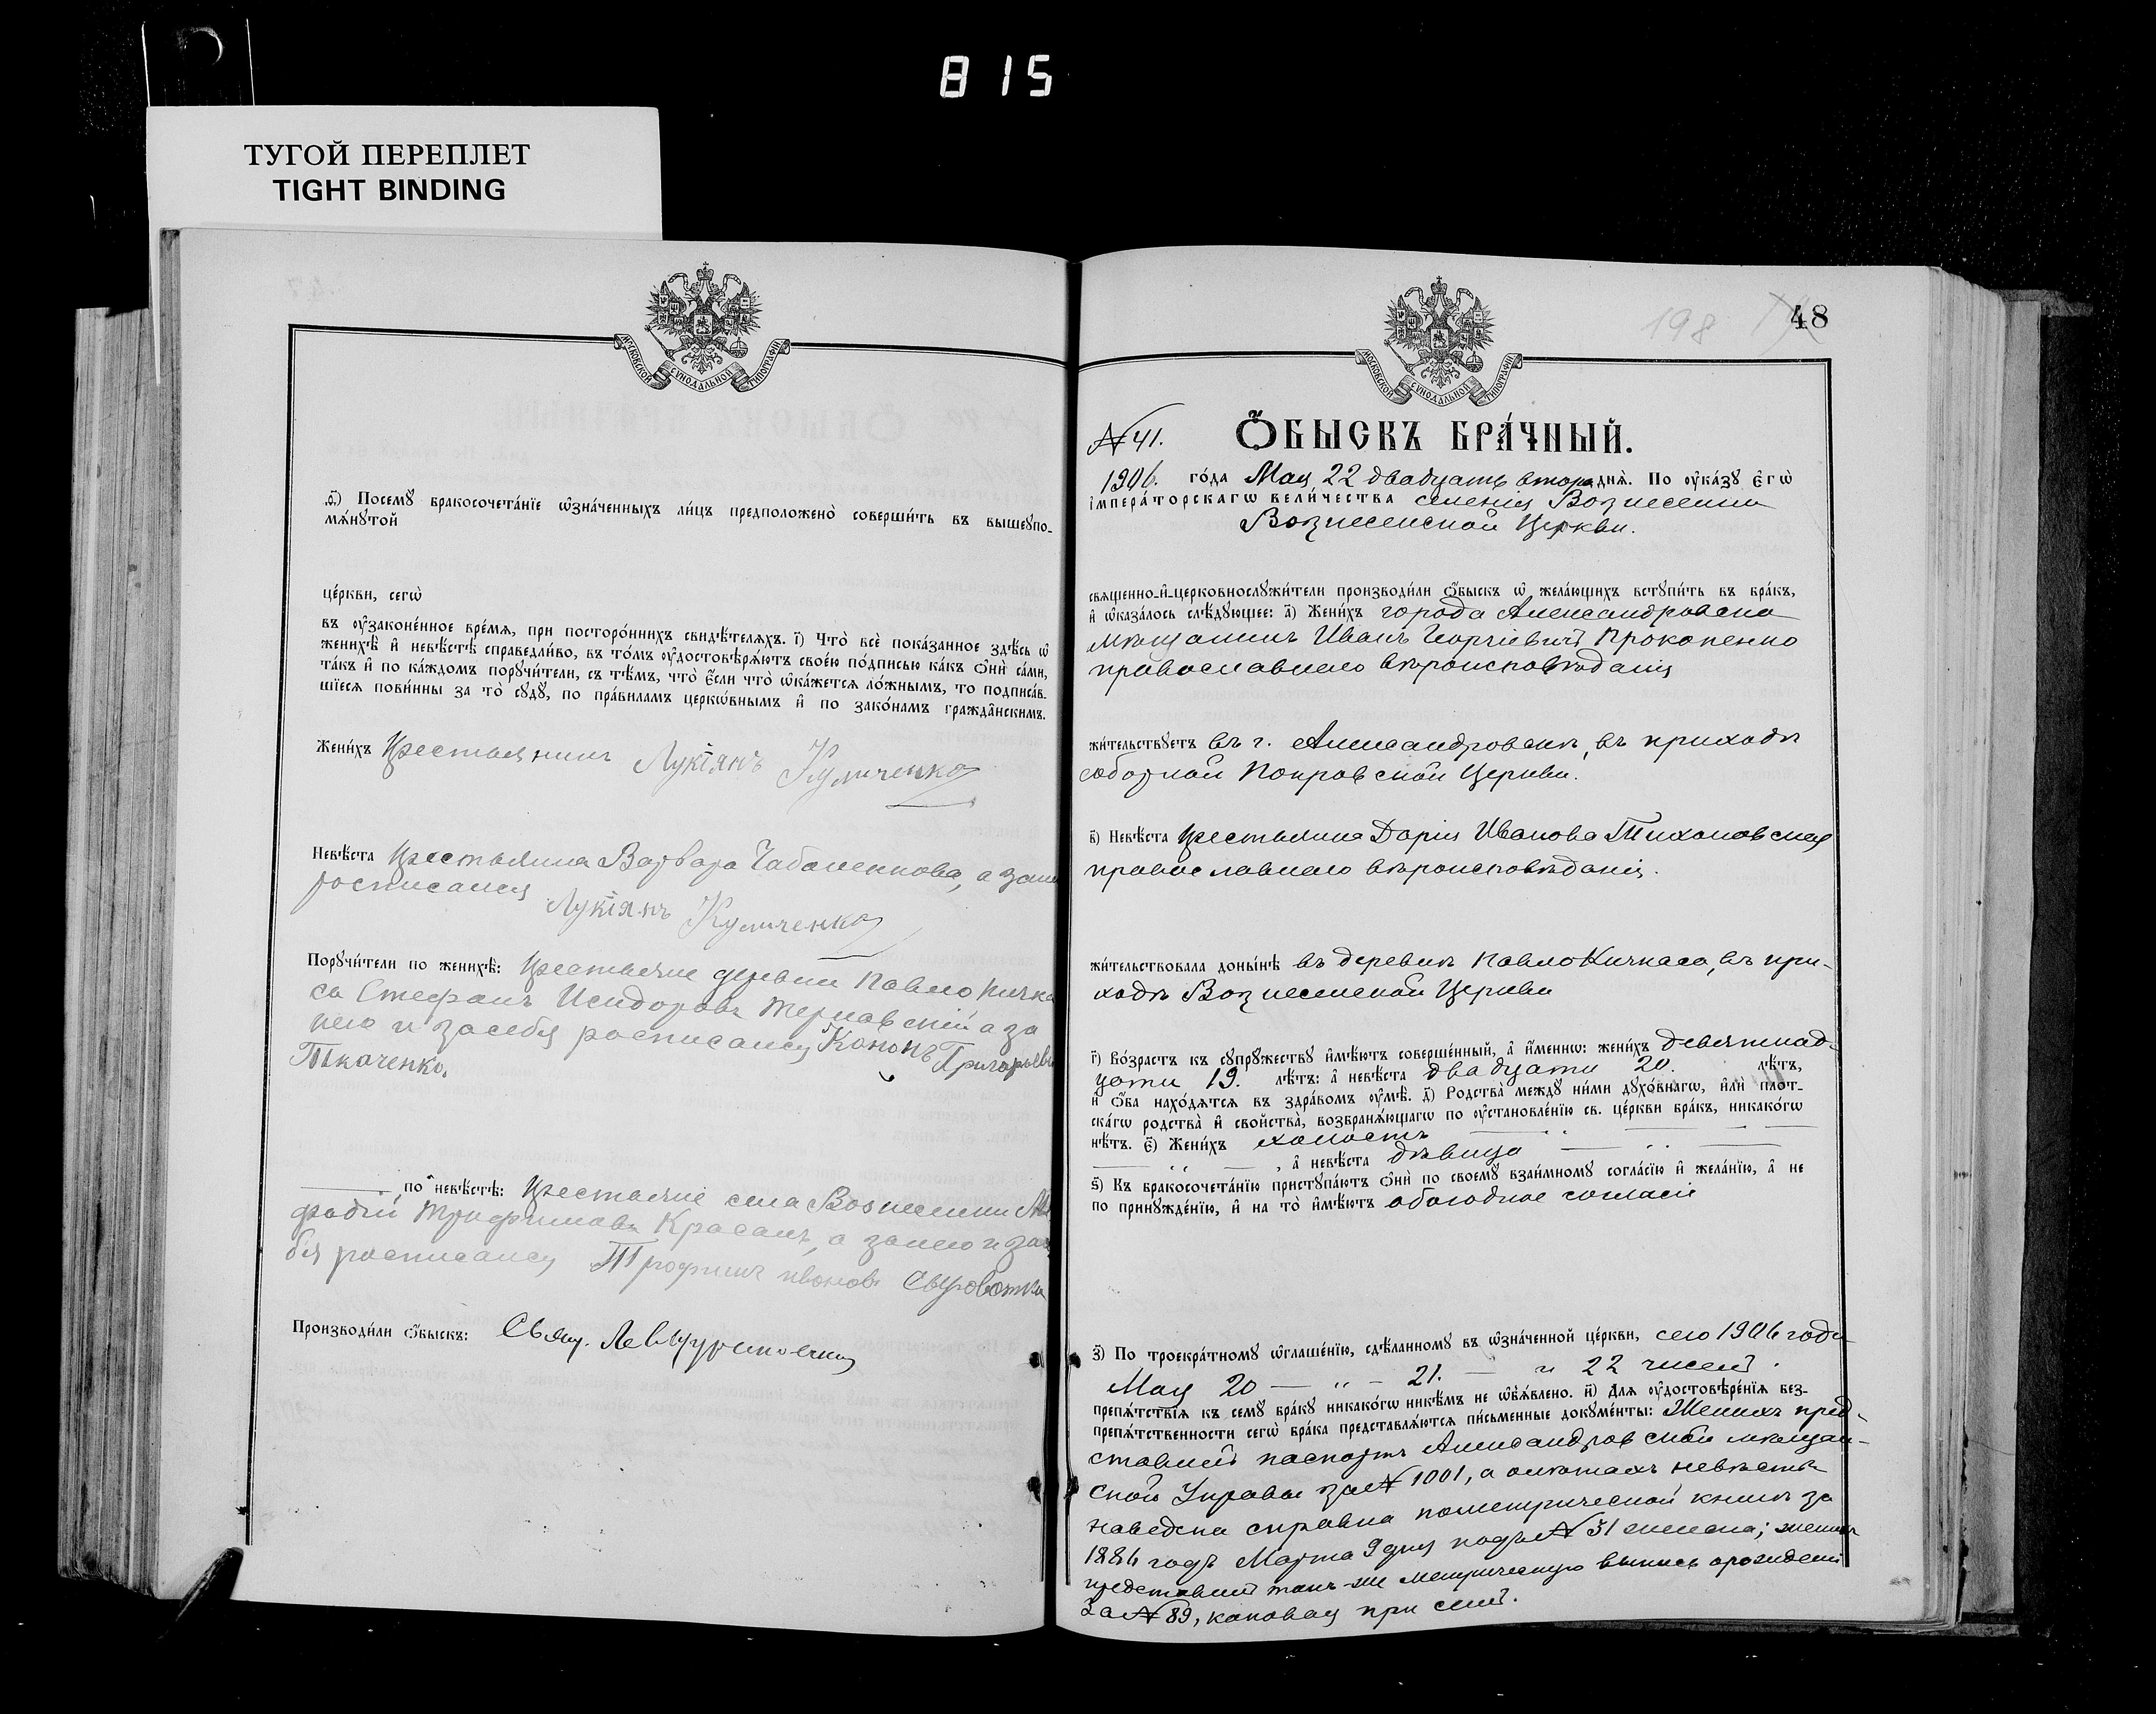 815
ТУГОЙ ПЕРЕПЛЕТ
TIGHT BINDING
МОСКОВСКОЙ СѴНОДАЛЬНОЙ ТИПОГРАФІИ
ѳ҃) Посемꙋ бракосочета́нїе ѡзна́ченныхъ ли́цъ предположено̀ соверши́ть въ вышеꙋпо-
мѧ́нꙋтой
це́ркви, сегѡ̀
въ ᲂу҆законе́нное вре́мѧ, при посторо́ннихъ свидѣ́телѧхъ. і҃) Что̀ всѐ пока́занное здѣ́сь ѡ҆
женихѣ̀ и҆ невѣ́стѣ справедли́во, въ то́мъ ᲂу҆достовѣрѧ́ютъ свое́ю по́дписью ка́къ ѻ҆нѝ са́ми,
та́къ и҆ по ка́ждомъ порꙋчи́тели, съ тѣ́мъ, что̀ є҆́сли что̀ ѡ҆ка́жетсѧ ло́жнымъ, то подписа́в-
шїесѧ пови́нны за то̀ сꙋдꙋ̀, по пра́виламъ церкѡ́внымъ и҆ по зако́намъ гражда̂нскимъ.
Жени́хъ Крестьянинъ Лукіянъ Куличенко
Невѣ́ста Крестьянка Варвара Чабаненкова, а за нее
росписался Лукіянъ Куличенко
Порꙋчи́тели по женихѣ̀: Крестьяне деревни Павло Кичка
са Стефанъ Исидоровъ Терновскій а за
него и за себя росписался Кононъ Григорьевъ
Ткаченко.
по невѣ́стѣ: Крестьяне села Вознесенки
фодій Трифимовъ Красанъ, а за него и за
бя росписался Трофимъ Ивановъ Сыроватка
Производи́ли ѻ҆́быскъ: Свящ.
48
198
МОСКОВСКОЙ СѴНОДАЛЬНОЙ ТИПОГРАФІИ
№ 41. Ѻ҆́БЫСКЪ БРА́ЧНЫЙ.
1906. го́да Мая 22 двадцать втора днѧ̀. По ᲂу҆ка́зꙋ є҆гѡ̀
і҆мпера́торскагѡ вели́чества селенія Вознесенки
Вознесенской Церкви.
свѧщенно-и҆-церковнослꙋжи́тели производи́ли ѻ҆́быскъ ѡ҆ жела́ющихъ встꙋпи́ть въ бра́къ,
и҆ ѡ҆каза́лось слѣ́дꙋющее: а҃) Жени́хъ города Александровска
мѣщанинъ Иванъ Георгіевичъ Прокопенко
православнаго вѣроисповѣданія
жи́тельствꙋетъ въ г. Александровскѣ, въ приходѣ
соборной Покровской Церкви.
в҃) Невѣ́ста Крестьянка Дарія Иванова Тихановская
православнаго вѣроисповѣданія.
жи́тельствовала доны́нѣ въ деревнѣ Павло Кичкасѣ, въ при-
ходѣ Вознесенской Церкви
г҃) Во́зрастъ къ сꙋпрꙋ́жествꙋ и҆мѣ́ютъ соверше́нный, а҆ и҆́меннѡ: жени́хъ девятнад-
цати 19. лѣ́тъ: а҆ невѣ́ста двадцати 20. лѣ́тъ,
и҆ ѻ҆́ба нахо́дѧтсѧ въ здра́вомъ ᲂу҆мѣ̀. д҃) Родства̀ междꙋ ни́ми дꙋхо́внагѡ, и҆лѝ плот-
ска́гѡ родства̀ и҆ сво́йства̀, возбранѧ́ющагѡ по ᲂу҆становле́нїю св. це́ркви бра́къ, никако́гѡ
нѣ́тъ. є҃) Жени́хъ холостъ
, а҆ невѣ́ста дѣвица
ѕ҃) Къ бракосочета́нїю пристꙋпа́ютъ ѻ҆нѝ по своемꙋ̀ взаи́мномꙋ согла́сїю и҆ жела́нїю, а҆ не
по принꙋжде́нїю, и҆ на то̀ и҆мѣ́ютъ обоюдное согласіе
з҃) По троекра́тномꙋ ѡ҆глаше́нїю, сдѣ́ланномꙋ въ ѡ҆зна́ченной це́ркви, сего 1906 года
Мая 20 — „ — 21. — и 22 чиселъ.
препѧ́тствїѧ къ семꙋ̀ бра́кꙋ никако́гѡ никѣ́мъ не ѡ҆б̾ѧ́влено. и҃) Длѧ ᲂу҆достовѣре́нїѧ без-
препѧ́тственности сегѡ̀ бра́ка представлѧ́ютсѧ пи́сьменные докꙋме́нты: Женихъ пред-
ставилъ паспортъ Александровской мѣщан-
ской Управы за № 1001, а о лѣтахъ невѣсты
наведена справка по метрической книгѣ за
1886 годъ Марта 9 дня подъ № 31 женска; женихъ
представилъ такъ-же метрическую выпись о рожденіи
за № 89, каковая при семъ.